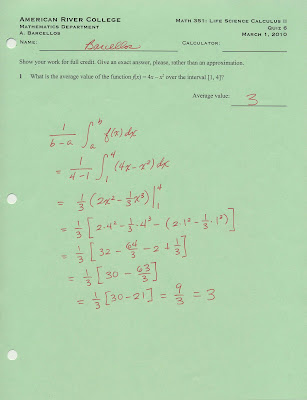 AMERICAN RIVER COLLEGE MATH 351: LIFE SCIENCE CALCULUS II
MATHEMATICS DEPARTMENT QUIZ 6
A. BARCELLOS MARCH 1, 2010
NAME: Barcellos CALCULATOR:
Show your work for full credit. Give an exact answer, please, rather than an approximation.
1 What is the average value of the function f(x) = 4x – x² over the interval [1, 4]?
Average value: 3
1/(b-a) ∫_a^b f(x) dx
= 1/(4-1) ∫_1^4 (4x - x²) dx
= 1/3 (2x² - 1/3 x³) |_1^4
= 1/3 [2·4² - 1/3·4³ - (2·1² - 1/3·1³)]
= 1/3 [32 - 64/3 - 2 + 1/3]
= 1/3 [30 - 63/3]
= 1/3 [30 - 21] = 9/3 = 3